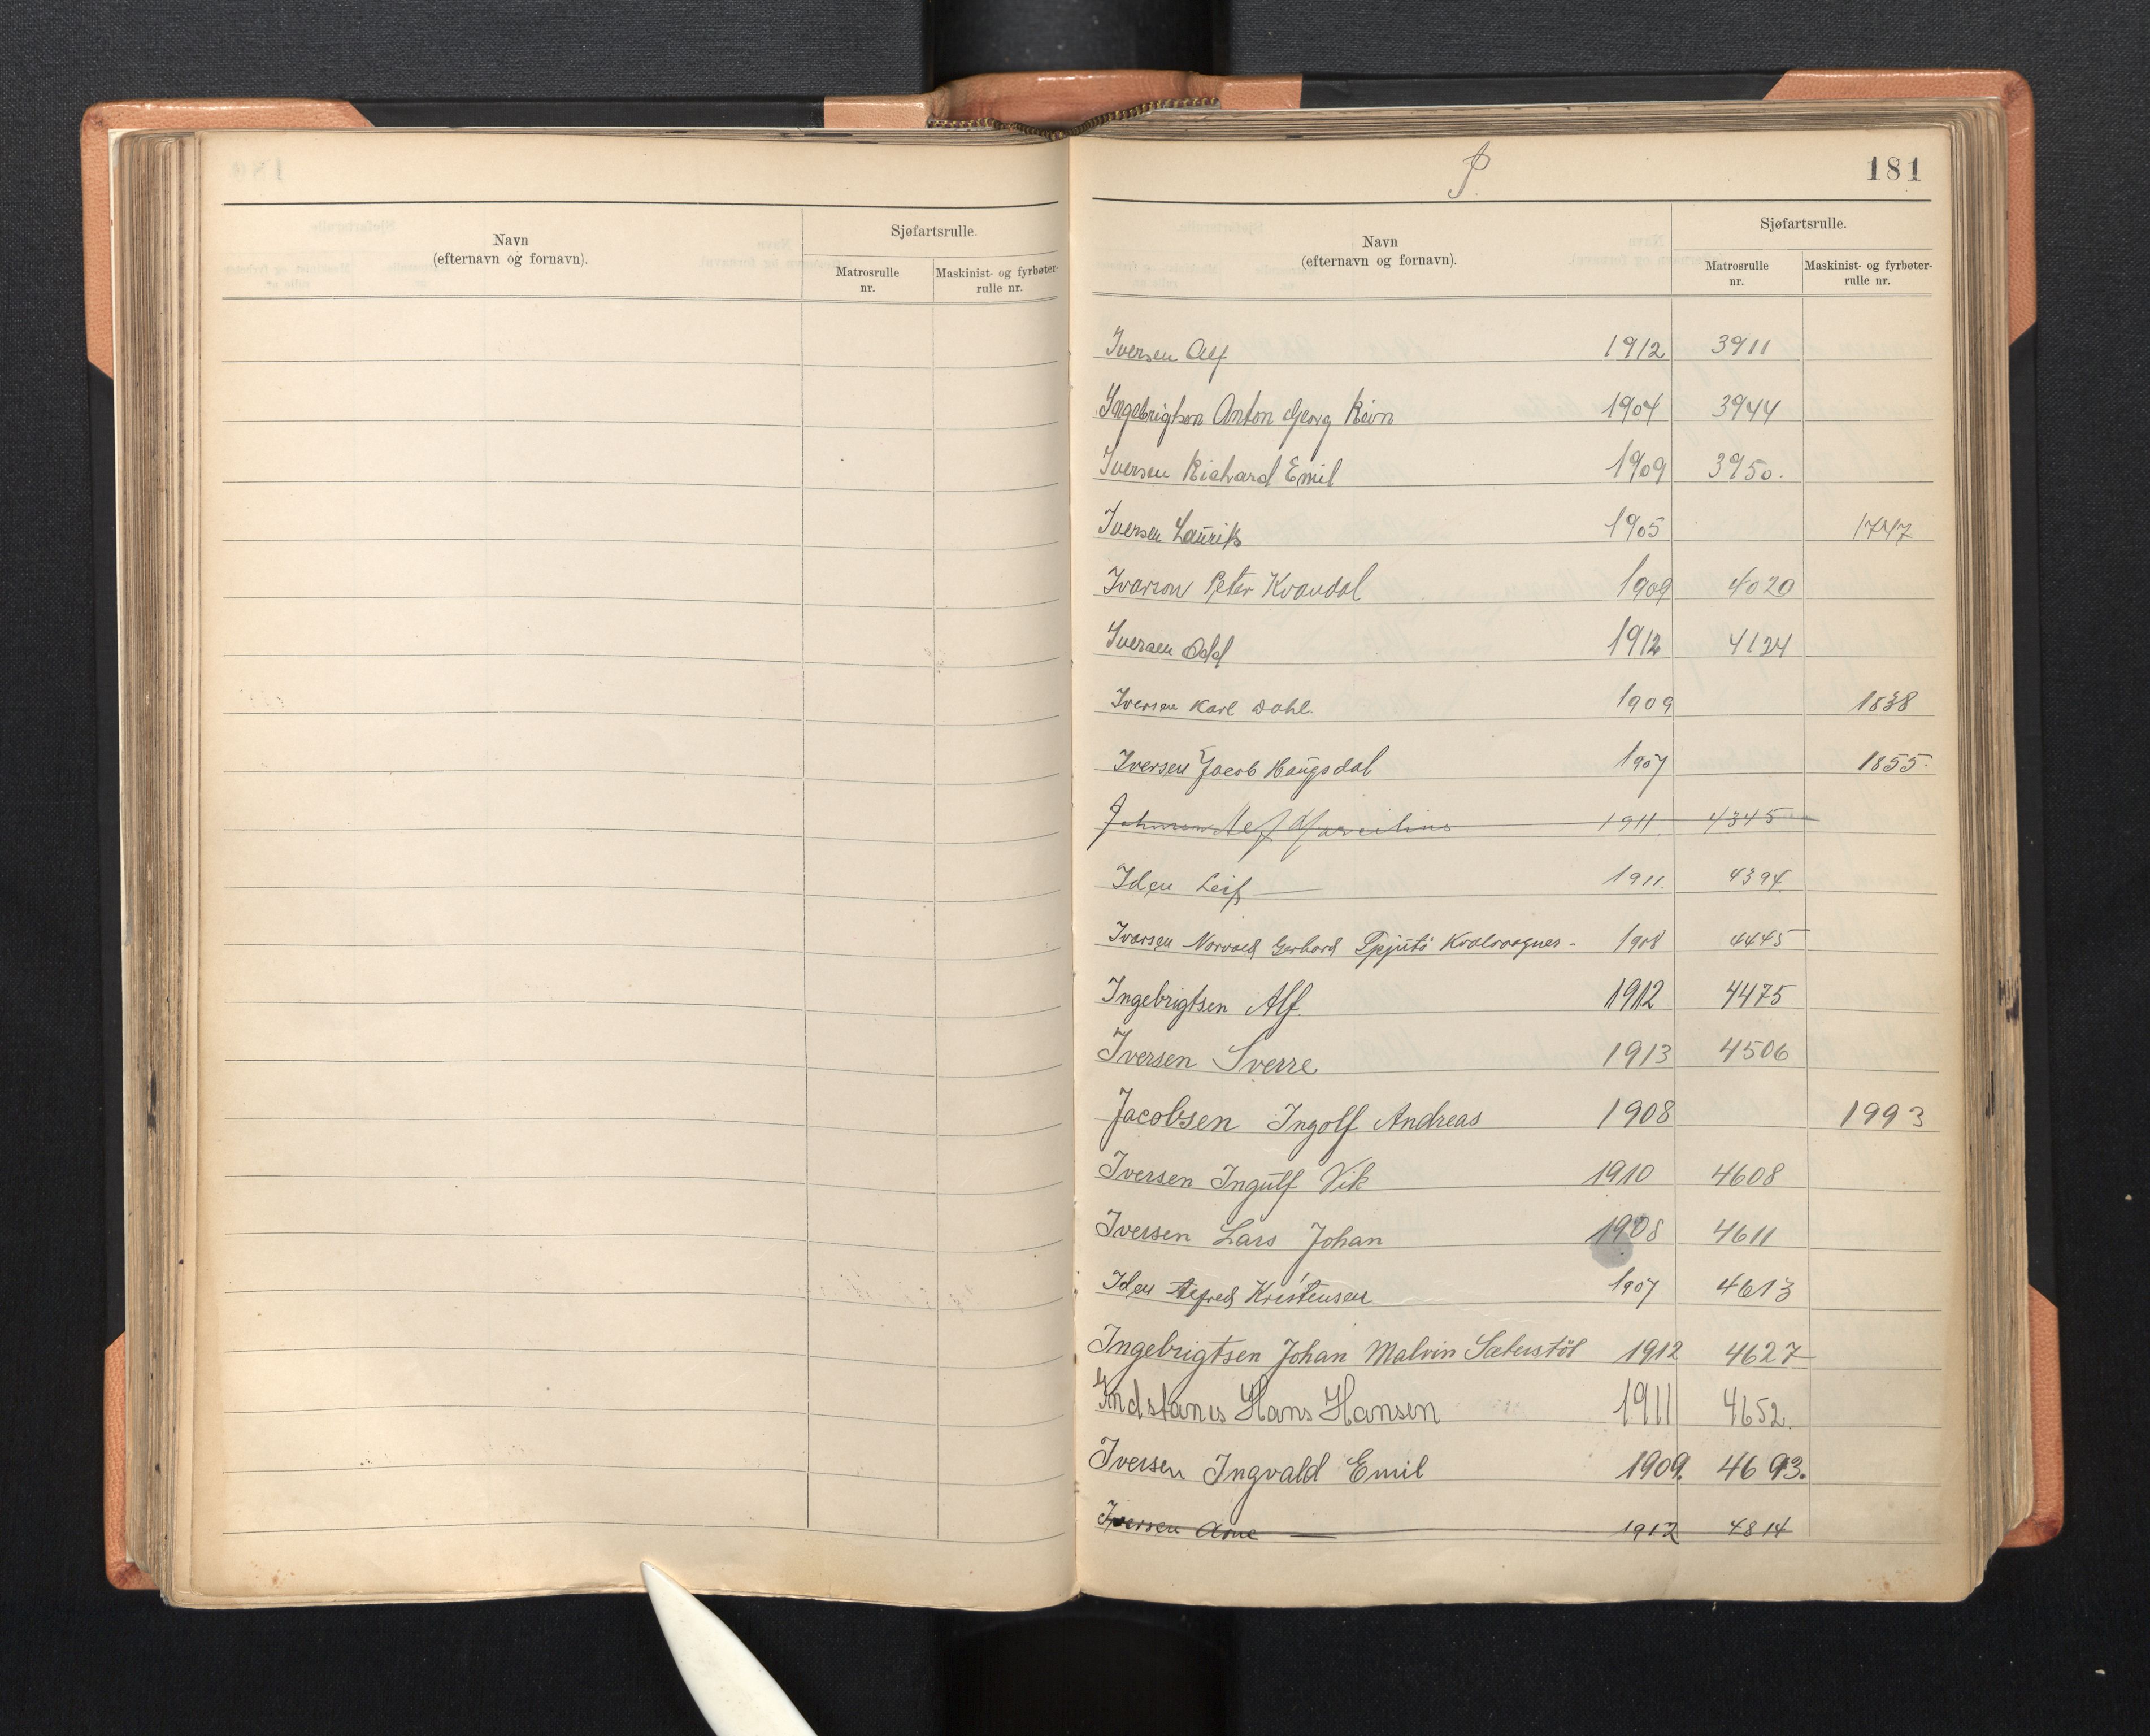 Navn
(efternavn og fornavn).
Sjøfartsrulle.
Matrosrulle
nr.
Maskinist- og fyrbøter-
rulle nr.
I.
181
Navn
(efternavn og fornavn).
Sjøfartsrulle.
Matrosrulle
nr.
Maskinist- og fyrbøter-
rulle nr.
Iversen Alf 1912 3911
Ingebrigtsen Anton Georg 1904 3944
Iversen Richard Emil 1909 3950.
Iversen Laurits 1905 1747
Ivarson Peter Kvandal 1909 4020
Iversen Odd 1912 4124
Iversen Karl Dahl. 1909 1838
Iversen Jacob Haugsdal 1907 1855.
1911. 4345
Iden Leif — 1911. 4394.
Ivarsen Norvald Gerhard 1908 4445
Ingebrigtsen Alf. 1912 4475
Iversen Sverre 1913 4506
Jacobsen Ingolf Andreas 1908 1993
Iversen Ingulf Vik 1910 4608
Iversen Lars Johan 1908 4611
Iden Alfred Kristensen 1907 4613
Ingebrigtsen Johan Malvin Sæterstøl 1912 4627
Indstanes Hans Hansen 1911 4652.
Iversen Ingvald Emil 1909. 4693.
Iversen Arne — 1912 4814